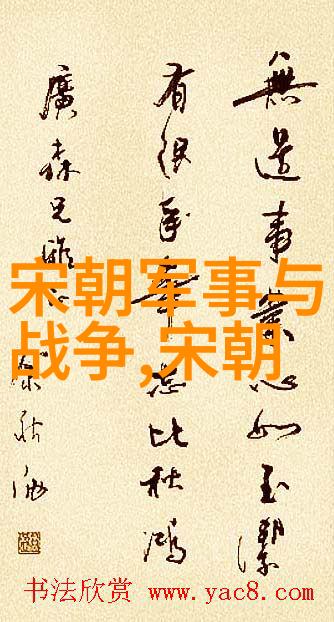 無邊事業心如玉潔
有限年華志比秋鴻
廣森兄
宋朝军事与
战争,宋朝
书法欣赏 www.yac8.com